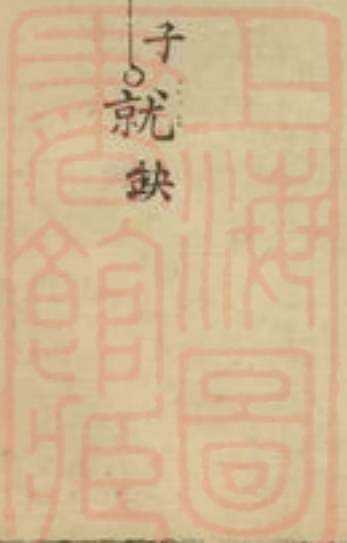 子
就
缺
上海圖
書館藏